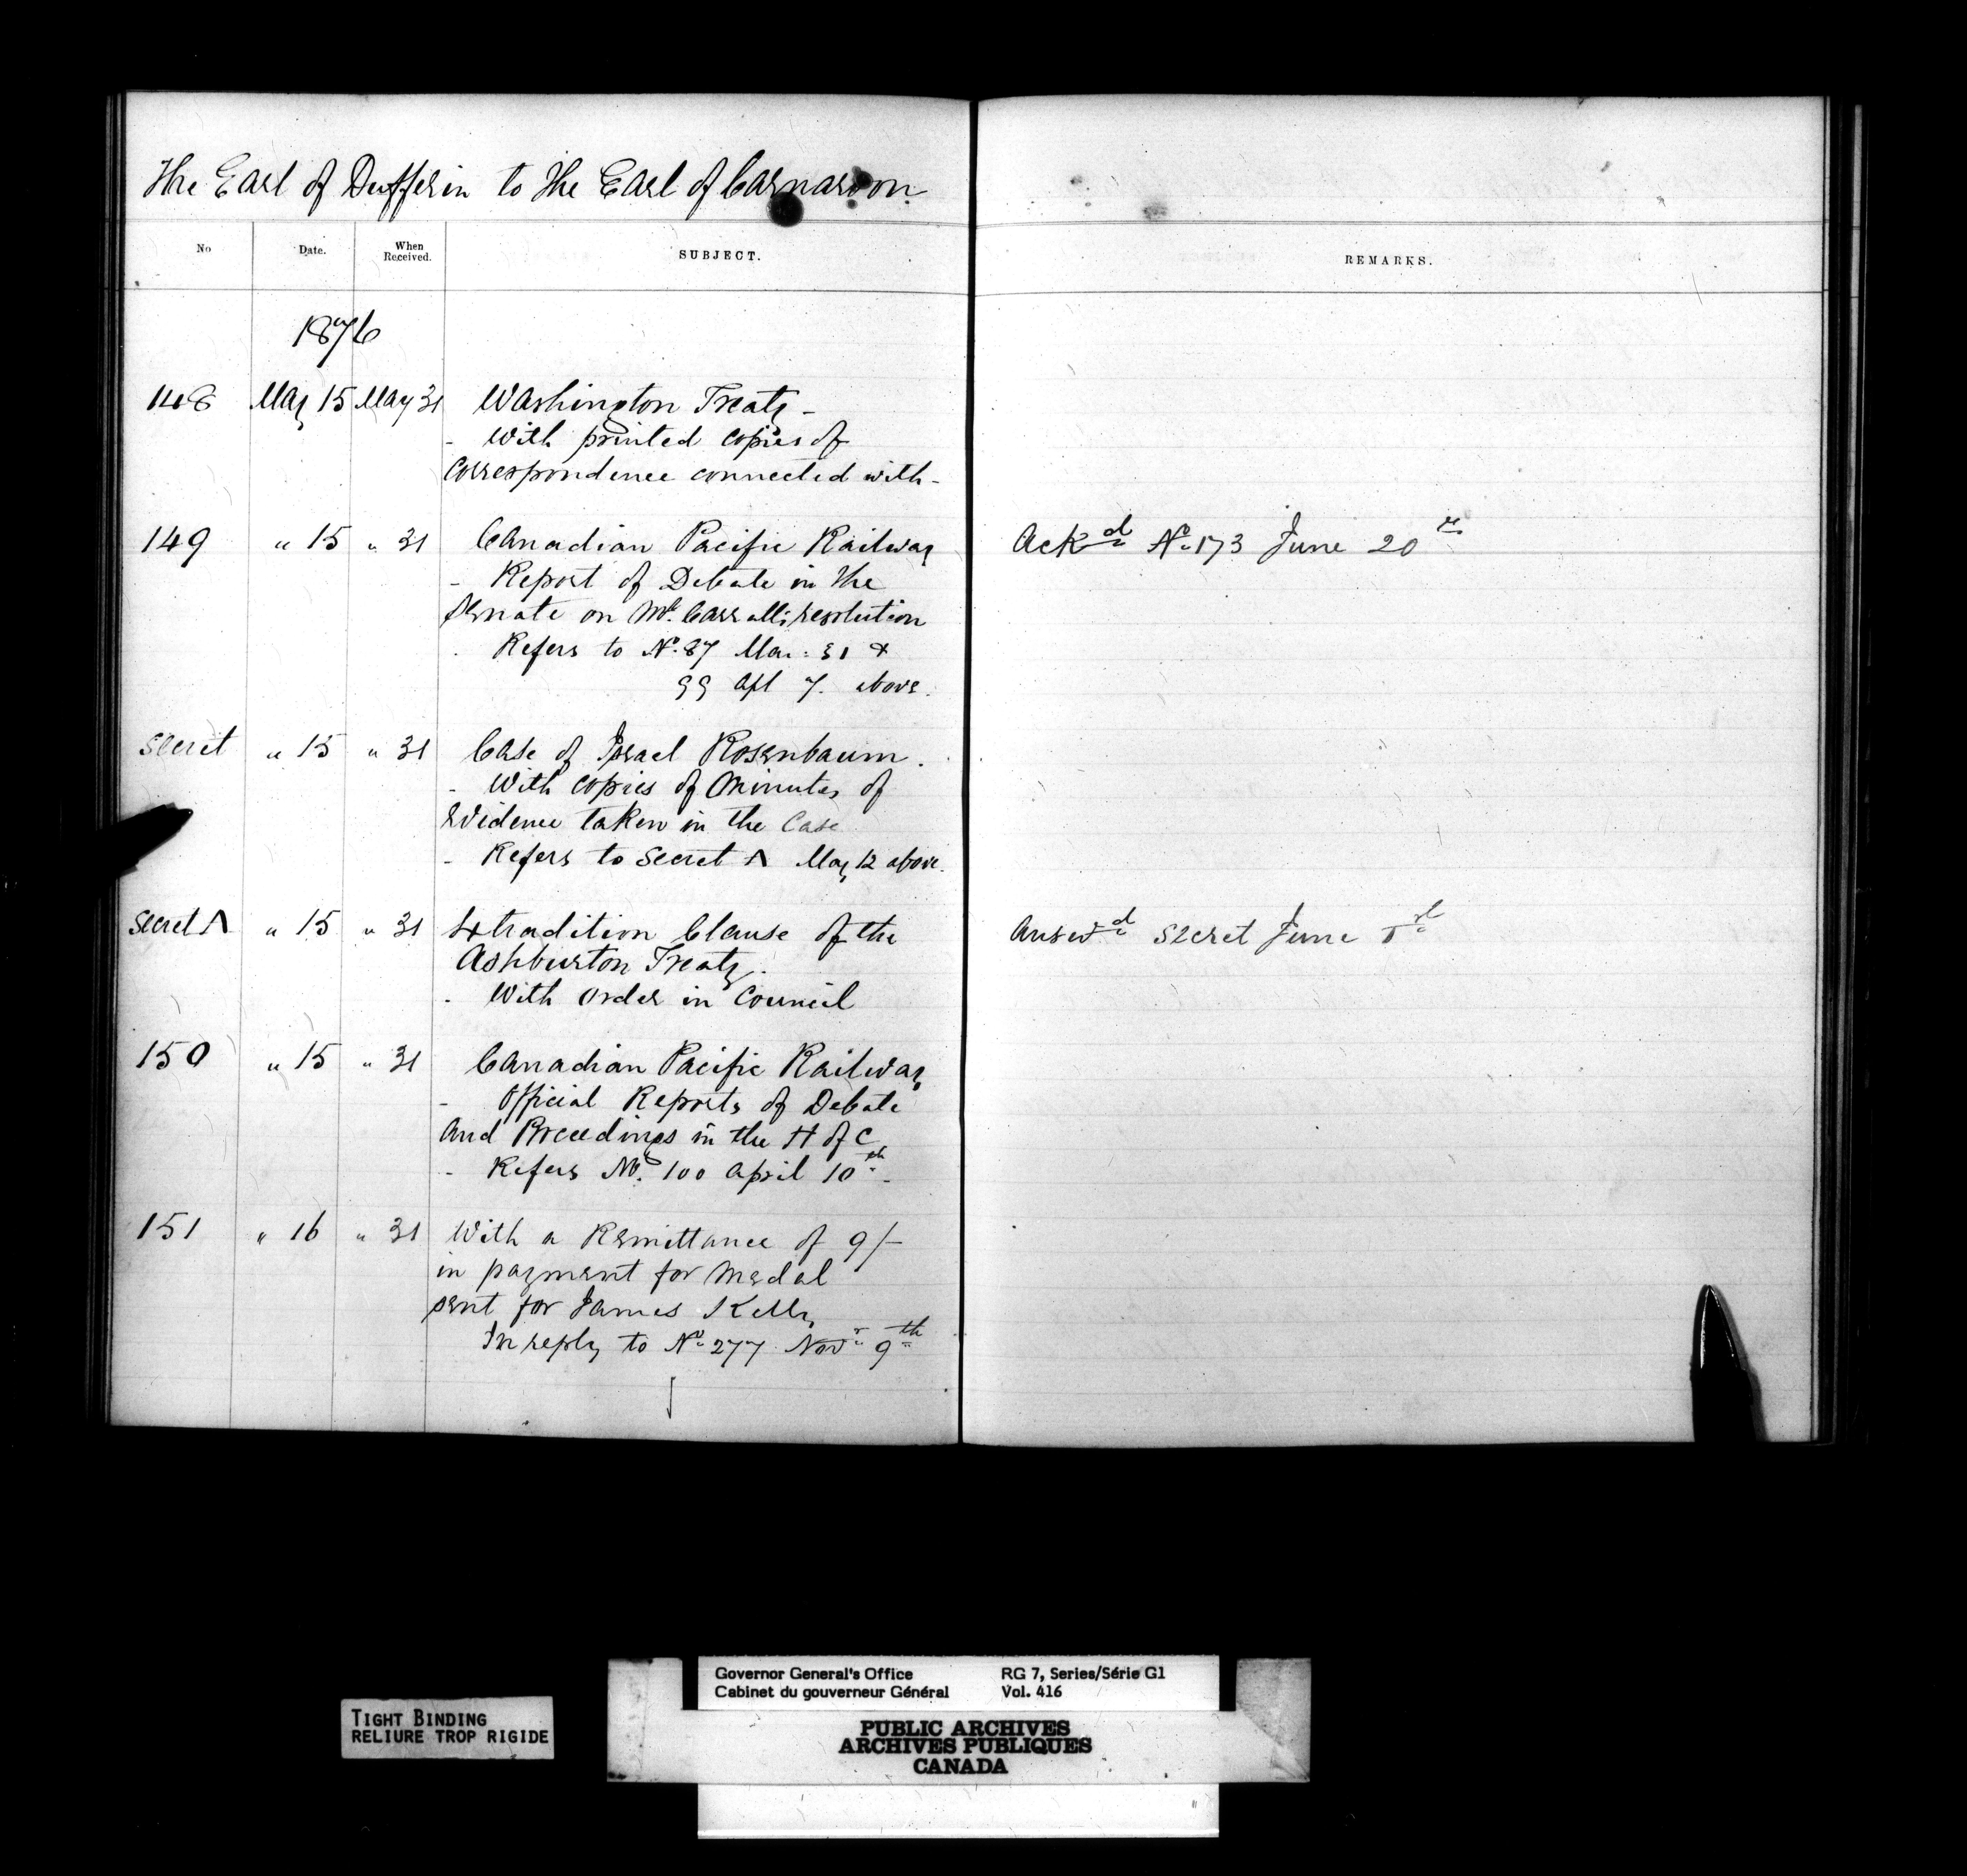 The Earl of Dufferin to the Earl of Carnarvon.
No Date. When Received. SUBJECT. REMARKS.
1876
148 May 15 May 31 Washington Treaty -
- With printed copies of
Correspondence connected with -
149 " 15 " 31 Canadian Pacific Railway Ackd No 173 June 20
- Report of Debate in the
Senate on Mr. Carralls resolution
Refers to No. 87 Mar: 31 &
99 Apl 7. above.
Secret " 15 " 31 Case of Israel Rosenbaum.
- With copies of Minutes of
Evidence taken in the Case
- Refers to Secret A May 12 above.
Secret A " 15 " 31 Extradition Clause of the Answd Secret June 1st
Ashburton Treaty.
- With Order in Council
150 " 15 " 31 Canadian Pacific Railway
- Official Reports of Debate
and Proceedings in the H of C
- Refers No. 100 April 10th -
151 " 16 " 31 With a Remittance of 9/-
in payment for Medal
sent for James Kelly
In reply to No 277 Novr 9th
TIGHT BINDING
RELIURE TROP RIGIDE
Governor General's Office RG 7, Series/Série G1
Cabinet du gouverneur Général Vol. 416
PUBLIC ARCHIVES
ARCHIVES PUBLIQUES
CANADA